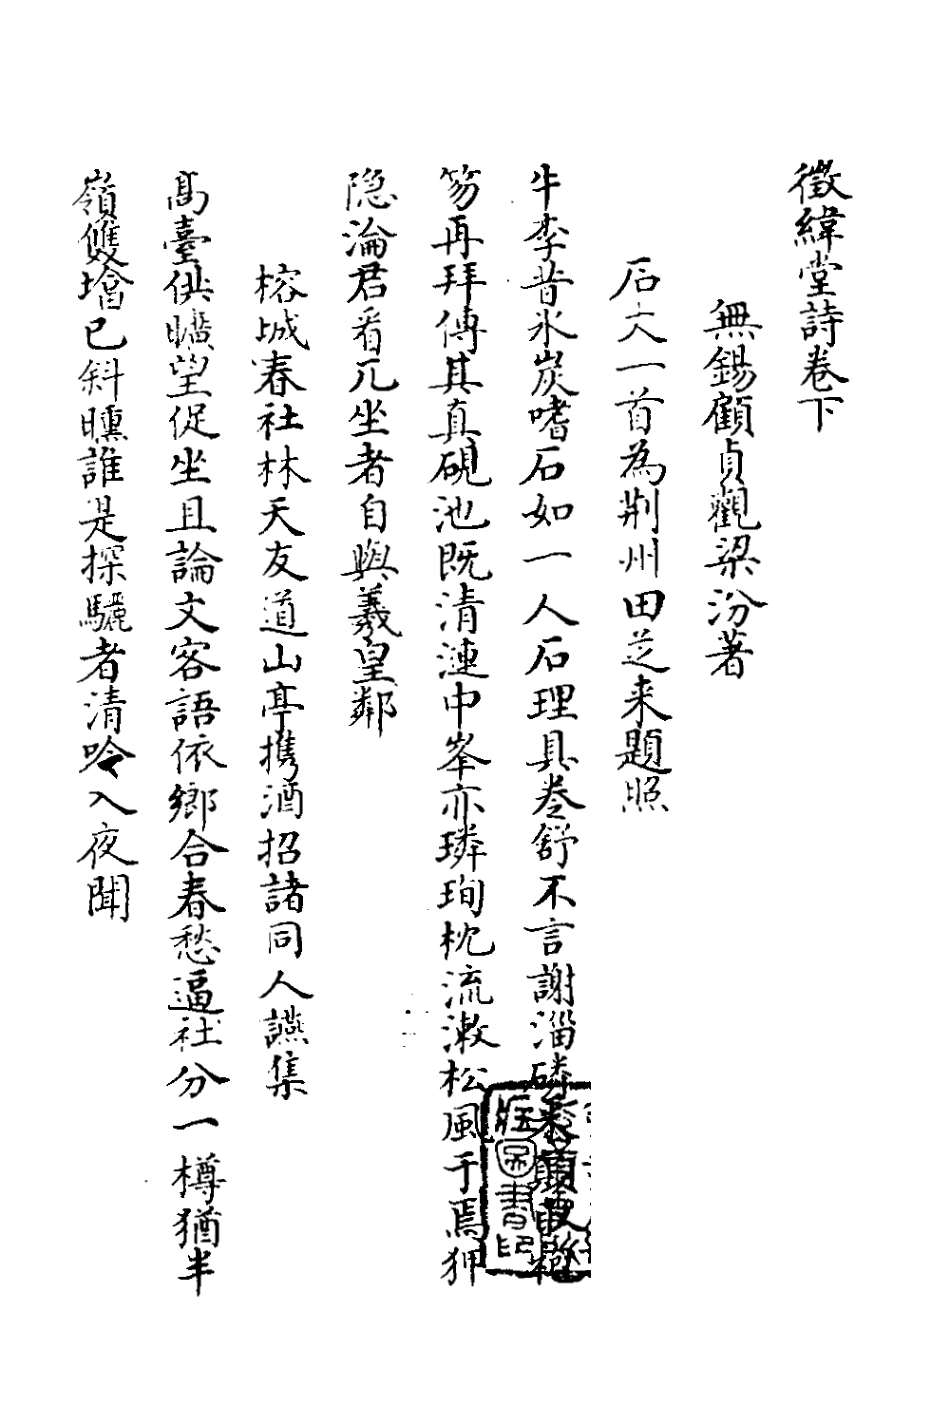 徵緯堂詩卷下
無錫顧貞觀梁汾著
石丈一首為荆州田芝来題照
牛李昔氷炭嗜石如一人石理具卷舒不言謝淄磷米顛敢袍
笏再拜傳其真硯池既清漣中峯亦璘珣枕流漱松風于焉狎
隐淪君看兀坐者自與羲皇鄰
榕城春社林天友道山亭携酒招諸同人讌集
髙臺供曠望促坐且論文客語依鄉合春愁逼社分一樽猶半
嶺雙墖已斜曛誰是探驪者清吟入夜聞
圖書印